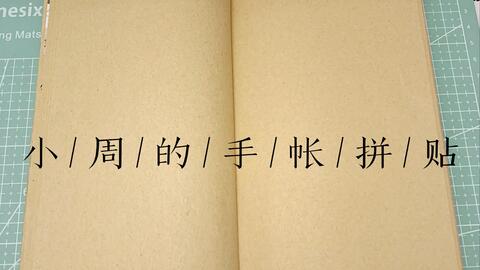 nesix
ng Mats
小/周的/手/帐/拼/贴